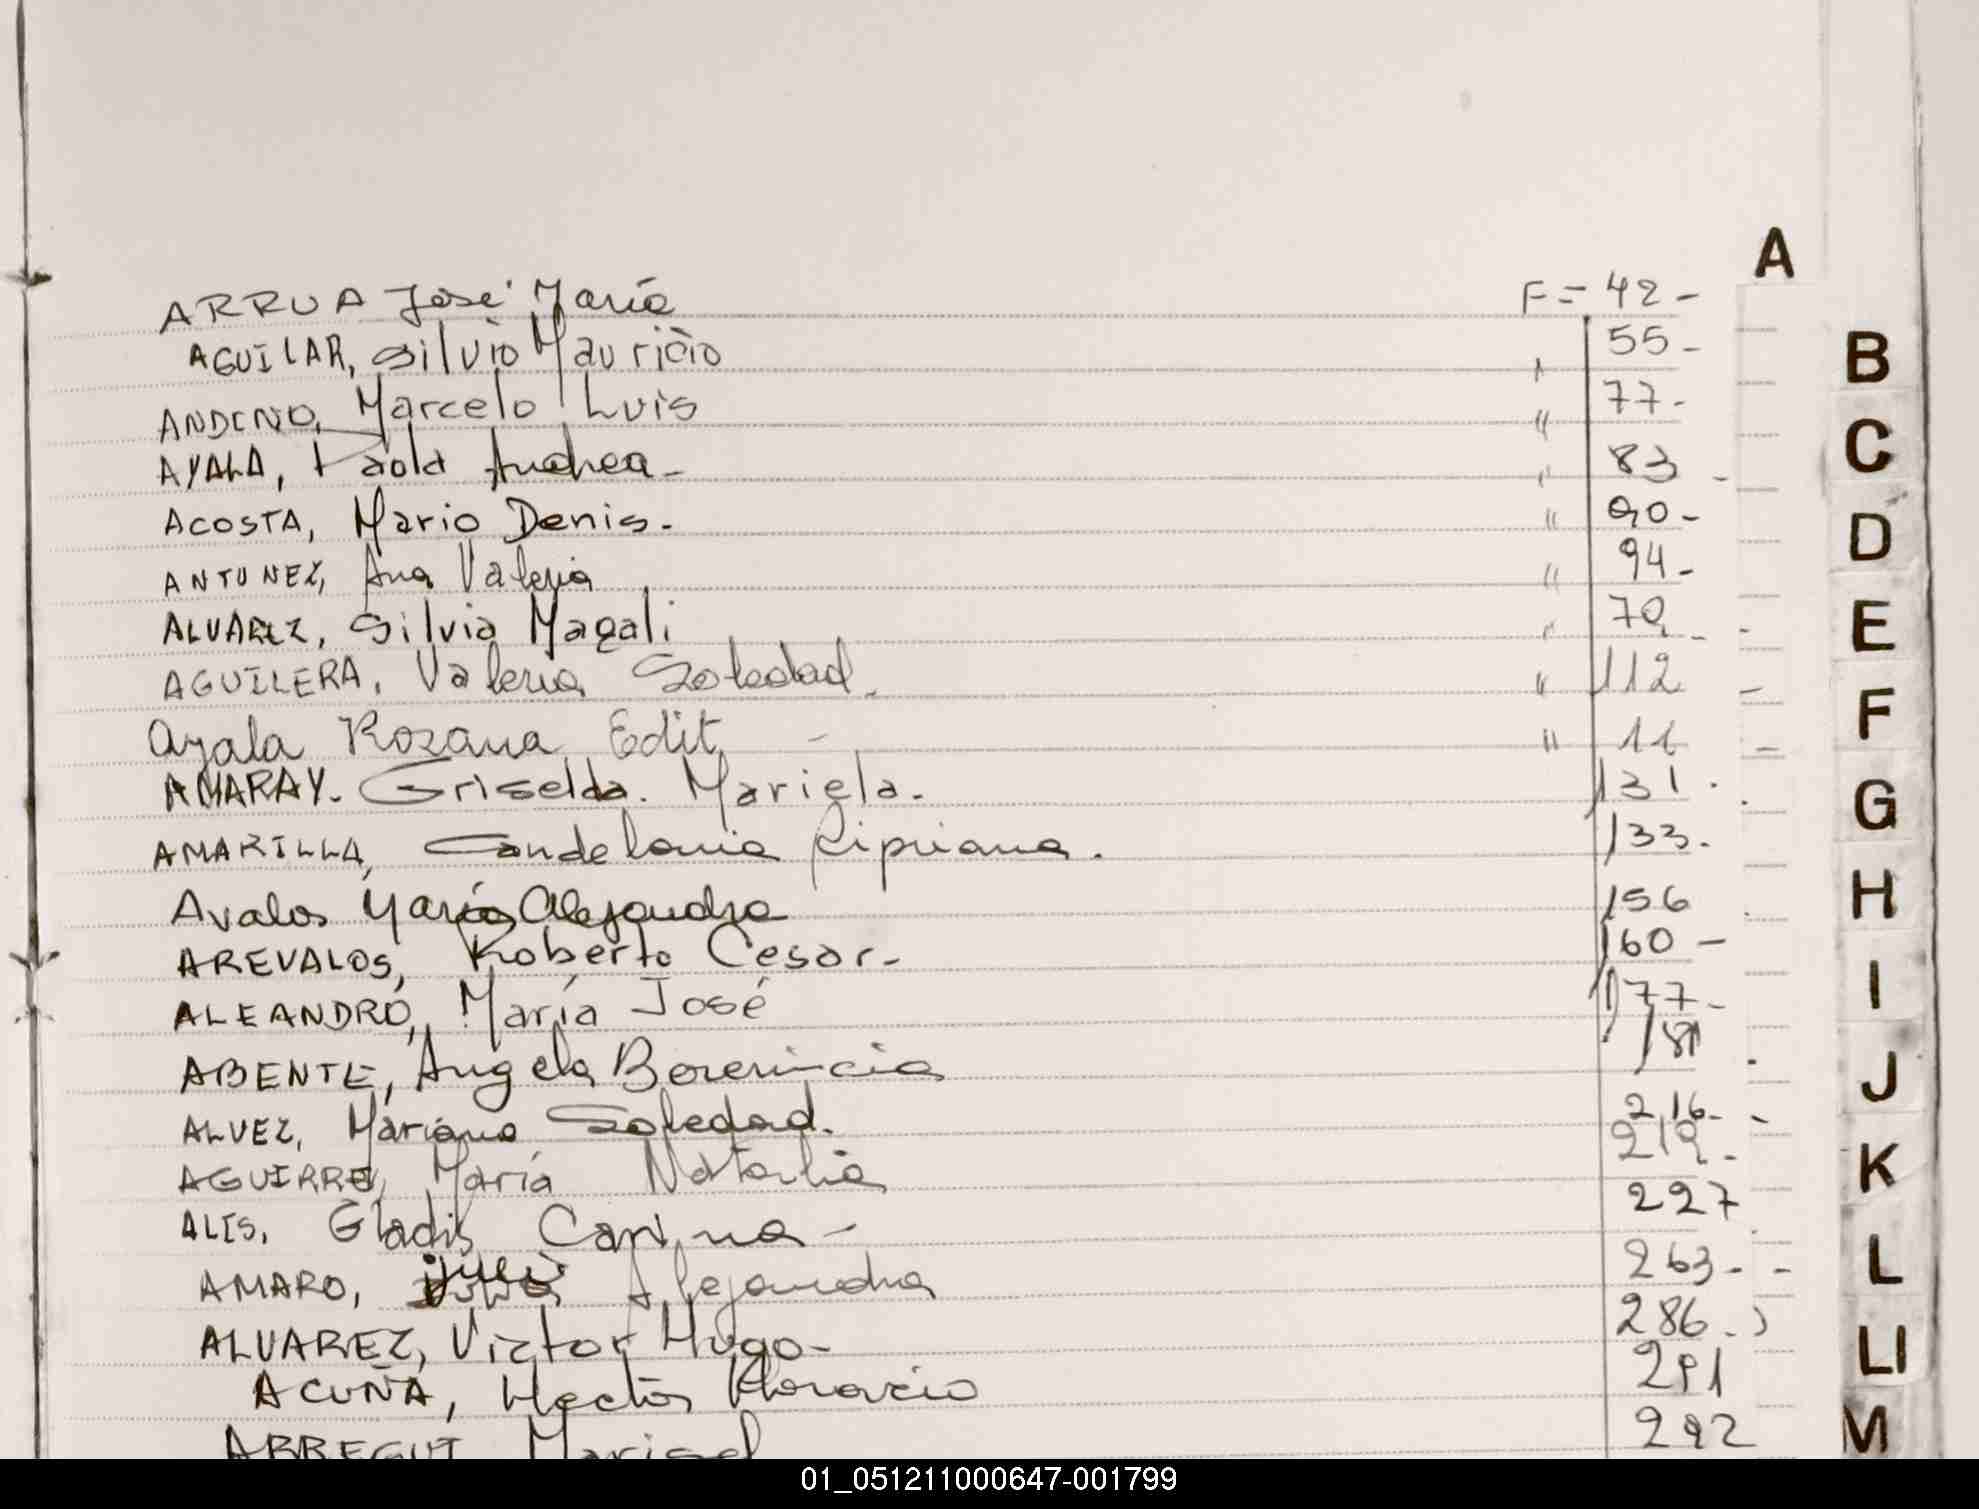 A
ARRUA José María F = 42 -
AGUILAR, Silvio Mauricio " 55 -
ANDINO, Marcelo Luis " 77 -
AYALA, Paola Andrea - " 83 -
ACOSTA, Mario Denis. " 90 -
ANTUNEZ, Ana Valeria " 94 -
ALVAREZ, Silvia Magali " 70 -
AGUILERA, Valeria Soledad. " 112 -
Ayala Rozana Edit - " 11 -
AMARAY. Griselda. Mariela. 131 .
AMARILLA, Candelaria Cipriana. 133.
Avalos María Alejandra 156
AREVALOS, Roberto Cesar - 160 -
ALEANDRO, María José 177 -
ABENTE, Angela 181
ALVEZ, Mariana Soledad. 216 -
AGUIRRE, María Natalia 219 -
ALIS, Gladis Carina - 227
AMARO, Alejandra 263 -
ALVAREZ, Victor Hugo - 286 -
ACUÑA, Hector Horacio 291
ARREGUI Marisel 292
B
C
D
E
F
G
H
I
J
K
L
Ll
M
01_051211000647-001799